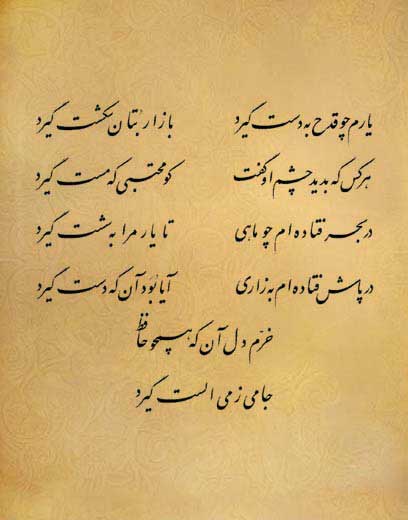 یارم چو قدح به دست گیرد بازار بُتان شکست گیرد
هر کس که بدید چشم او گفت کو محتسبی که مست گیرد
در بحر فتاده‌ام چو ماهی تا یار مرا به شست گیرد
در پاش فتاده‌ام به زاری آیا بُوَد آن که دست گیرد
خرّم دل آن که همچو حافظ
جامی ز می الست گیرد